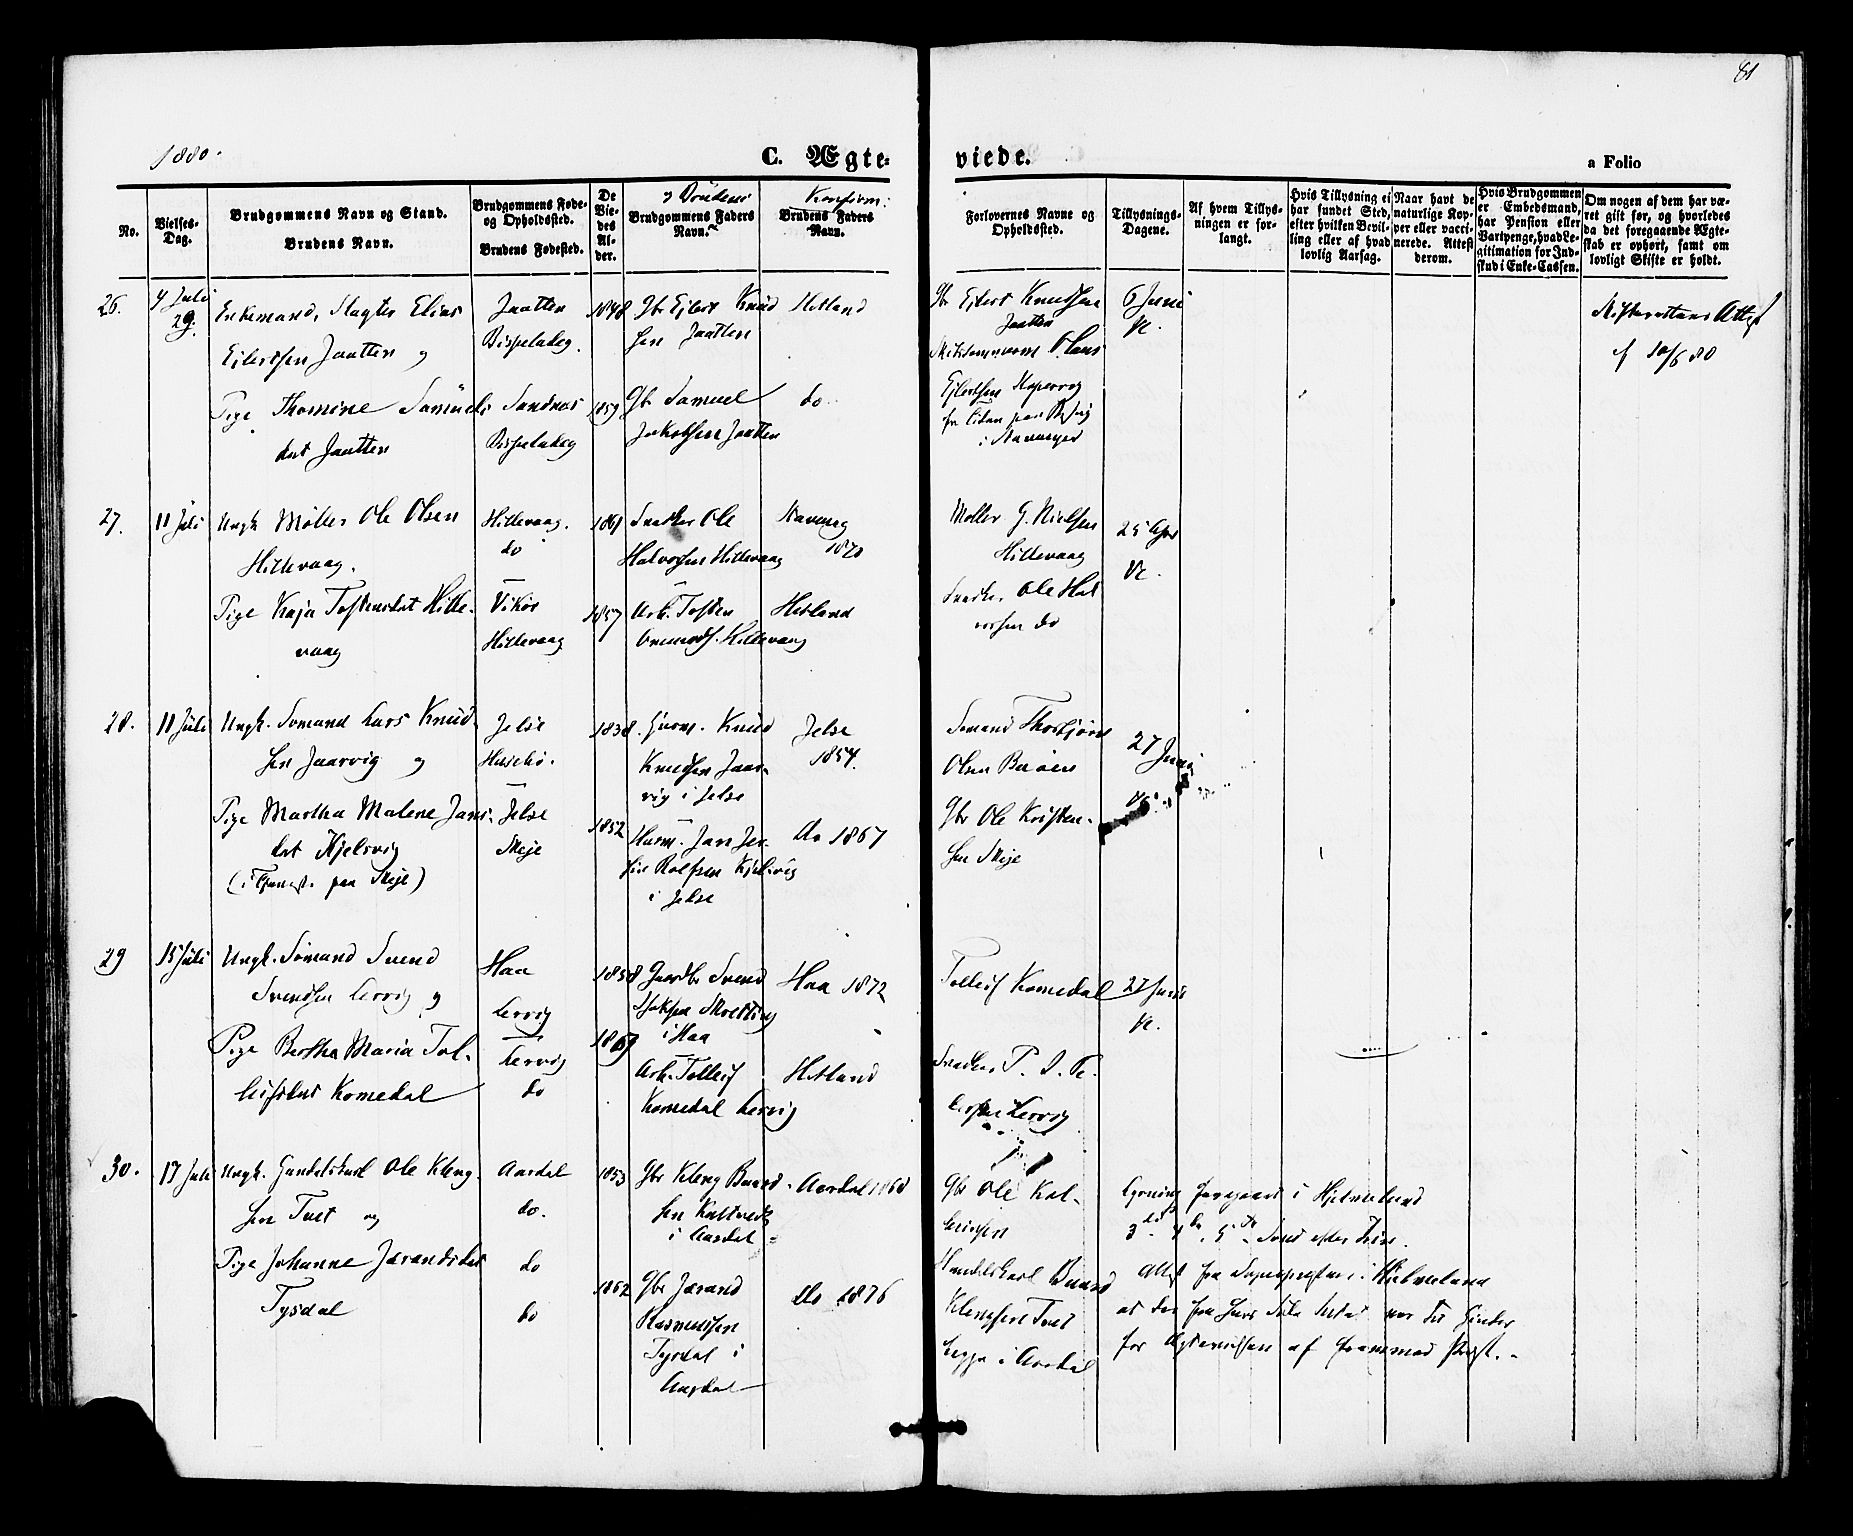 81
1880.
C. Ægte-
viede.
a Folio
No.
Vielses-
Dag.
Brudgommens Navn og Stand.
Brudens Navn.
Brudgommens Føde-
og Opholdsted.
Brudens Fødested.
De
Vie-
des
Al-
der.
og Brudens
Brudgommens Faders
Navn.
Konfirm:
Brudens Faders
Navn.
Forlovernes Navne og
Opholdsted.
Tillysnings-
Dagene.
Af hvem Tillys-
ningen er for-
langt.
Hvis Tillysning ei
har fundet Sted,
efter hvilken Bevil-
ling eller af hvad
lovlig Aarsag.
Naar havt de
naturlige Kop-
per eller vacci-
nerede. Attest
derom.
Hvis Brudgommen
er Embedsmand,
har Pension eller
Vartpenge, hvad Le-
gitimation for Ind-
skud i Enke-Cassen.
Om nogen af dem har væ-
ret gift før, og hvorledes
da det foregaaende Ægte-
skab er ophørt, samt om
lovligt Skifte er holdt.
26.
4 Juli
29.
Enkemand, Slagter Elias
Ejlertsen Jaatten og
Pige Thomine Samuels
dat Jaatten
Jaatten
Bispeladeg.
Sandnes
Bispeladeg
1848
1859
Gbr Ejlert Knud
sen Jaatten
Gbr Samuel
Jakobsen Jaatten
Hetland
do
Gbr Ejlert Knudsen
Jaatten
Olaus
Ejlertsen Kopervig
i Stavanger
6 Juni
Skifterettens Attest
af 10/6 80
27.
11 Juli
Ungk. Møller Ole Olsen
Hillevaag.
Pige Kaja Tostensdat Hille-
vaag
Hillevaag.
do
Vikør
Hillevaag
1861
1857
Snedker Ole
Halvorsen Hillevaag
Arb. Tosten
Hillevaag
Stavang
Hetland
Møller G. Nielsen
Hillevaag
Snedker Ole Hal
vorsen do
25 Apr
28.
11 Juli
Ungk. Sømand Lars Knud-
sen Jaarvig og
Pige Martha Malene Jans-
dat Hjelsvig
(i Tjenest. paa Meje)
Jelse
Husebø.
Jelse
Meje
1838
1852
Husm. Knud
Knudsen Jaar-
vig i Jelse
Husm. Jan
i Jelse
Jelse
1854.
Do 1867
Sømand Thorbjørn
Olsen Buøen
Gbr Ole Kristen-
sen Meje
27 Juni
29
15 Juli
Ungk. Sømand Svend
Svendsen Lervig og
Pige Bertha Maria Tol-
leifsdat Komedal
Haa
Lervig
Lervig
do
1858
Gaardbr Svend
i Haa
Arb. Tolleif
Komedal Lervig
Haa 1872
Hetland
Tolleif Komedal
Snedker P.
Lervig
27 Juni
30.
17 Juli
Ungk. Handelskarl Ole Kleng-
sen Tvet og
Pige Johanne Jærandsdat
Tysdal
Aardal
do.
do
do
1853
1862
Gbr Kleng Baard-
sen
i Aardal
Gbr Jærand
Rasmussen
Tysdal i
Aardal
Aardal 1868
do 1876
Gbr Ole Kol-
Handelskarl Baard
Klengsen Tvet
begge i Aardal
Lysning foregaaet i Hjelmeland
Attest fra Sognepresten i Hjelmeland
at der fra hans Side Intet var til Hinder
for Ægtevielsen af fremmed Prest.